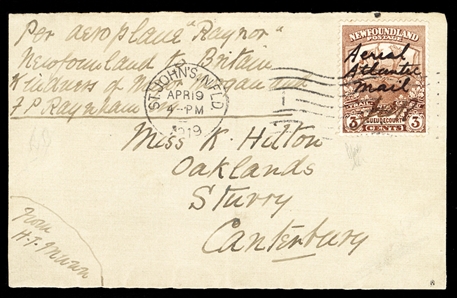 Per aeroplane "Raynor"
Newfoundland to Britain
Kindness of Morgan and
F P Raynham
ST. JOHN'S, N'F'L'D
APR 19
4-PM
1919
NEWFOUNDLAND
POSTAGE
Aerial
Atlantic
Mail
TRAIL
GUEUDECOURT
3 CENTS 3
Miss K. Hilton
Oaklands
Sturry
Canterbury
From